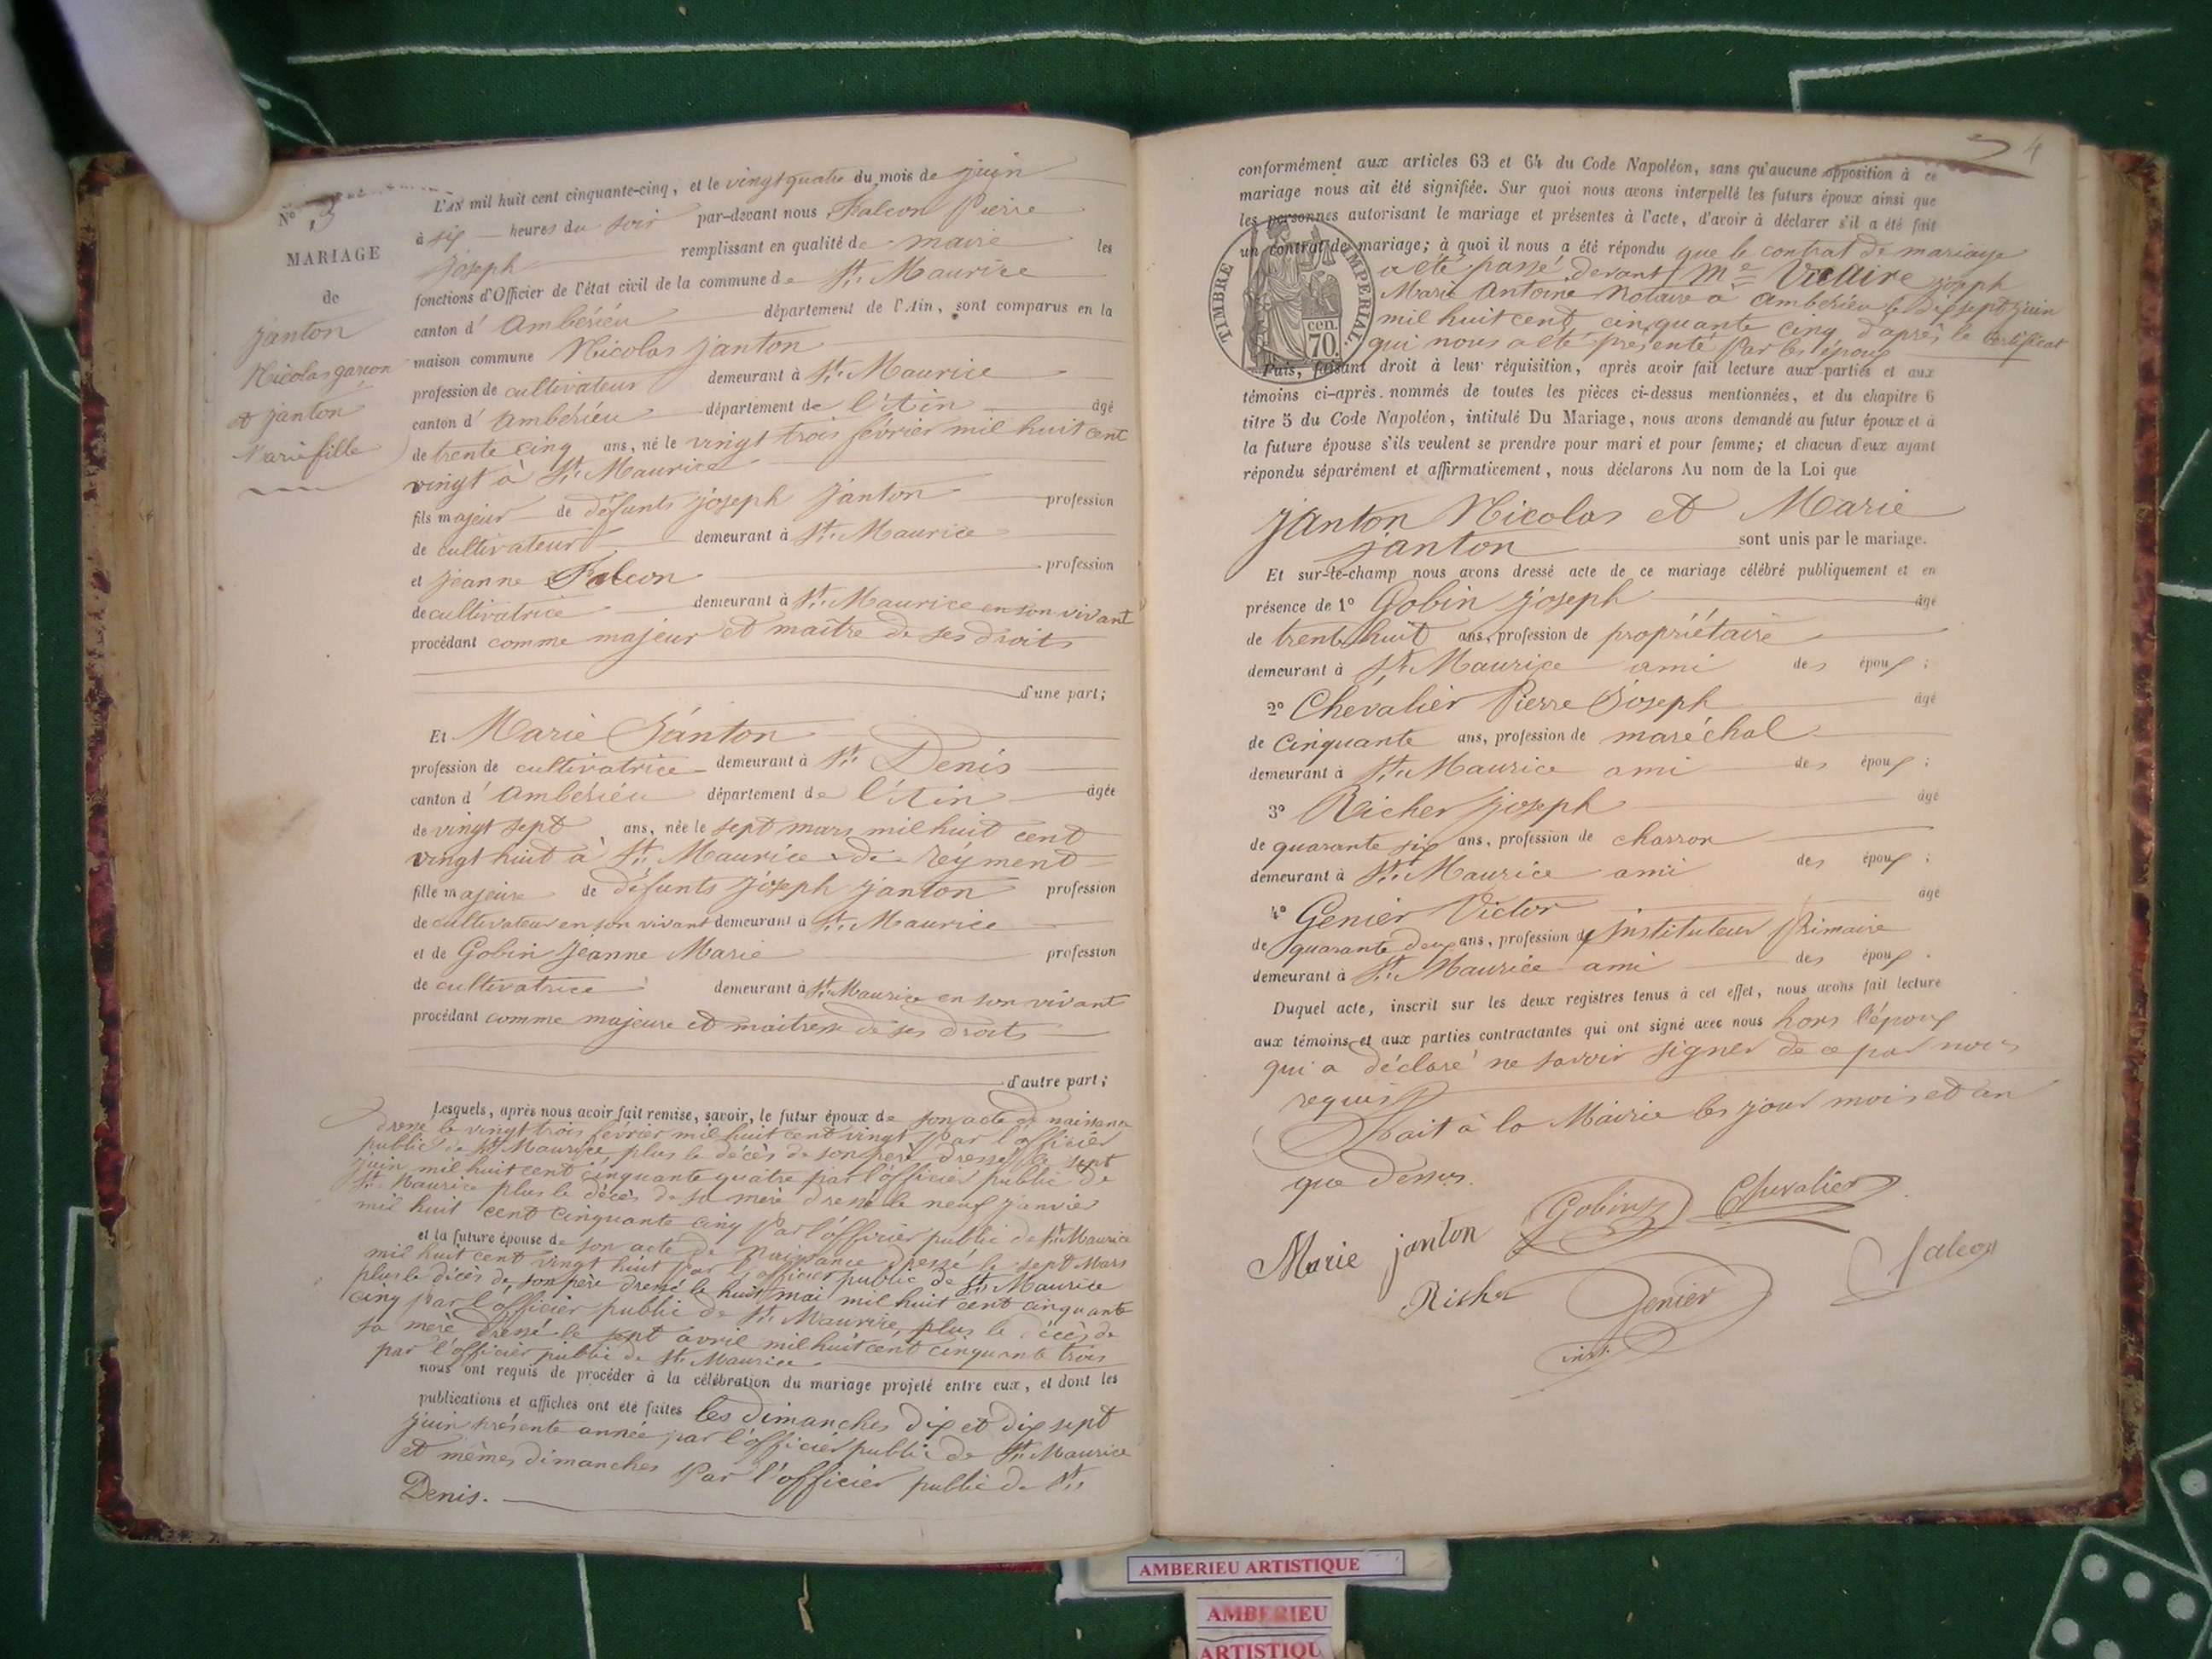 N° 3
MARIAGE
de
janton
Nicolas garçon
et janton
Marie fille
L'AN mil huit cent cinquante-cinq, et le vingt quatre du mois de juin
à six heures du soir par-devant nous Falcon Pierre
joseph remplissant en qualité de maire les
fonctions d'Officier de l'état civil de la commune de St. Maurice
canton d' Ambérieu département de l'Ain, sont comparus en la
maison commune Nicolas janton
profession de cultivateur demeurant à St. Maurice
canton d' Ambérieu département de l'Ain âgé
de trente cinq ans, né le vingt trois février mil huit cent
vingt à St. Maurice
fils majeur de défunts joseph janton profession
de cultivateur demeurant à St. Maurice
et jeanne Falcon profession
de cultivatrice demeurant à St. Maurice en son vivant
procédant comme majeur et maître de ses droits
d'une part;
Et Marie Janton
profession de cultivatrice demeurant à St. Denis
canton d' Ambérieu département de l'Ain âgée
de vingt sept ans, née le sept mars mil huit cent
vingt huit à St. Maurice de réyment
fille majeure de défunts joseph janton profession
de cultivateur en son vivant demeurant à St. Maurice
et de Gobin jeanne Marie profession
de cultivatrice demeurant à St. Maurice en son vivant
procédant comme majeure et maitresse de ses droits
d'autre part;
Lesquels, après nous avoir fait remise, savoir, le futur époux de son acte de naissance
dressé le vingt trois février mil huit cent vingt par l'officier
public de St. Maurice, plus le décès de son père dressé le sept
juin mil huit cent cinquante quatre par l'officier public de
St. Maurice plus le décès de sa mère dressé le neuf janvier
mil huit cent cinquante cinq par l'officier public de St. Maurice
et la future épouse de son acte de naissance dressé le sept Mars
mil huit cent vingt huit par l'officier public de St. Maurice
plus le décès de son père dressé le huit mai mil huit cent cinquante
cinq par l'officier public de St. Maurice, plus le décès de
sa mère dressé le sept avril mil huit cent cinquante trois
par l'officier public de St. Maurice
nous ont requis de procéder à la célébration du mariage projeté entre eux, et dont les
publications et affiches ont été faites les dimanches dix et dix sept
juin présente année par l'officier public de St. Maurice
et mêmes dimanches par l'officier public de St.
Denis.
4
conformément aux articles 63 et 64 du Code Napoléon, sans qu'aucune opposition à ce
mariage nous ait été signifiée. Sur quoi nous avons interpellé les futurs époux ainsi que
les personnes autorisant le mariage et présentes à l'acte, d'avoir à déclarer s'il a été fait
un contrat de mariage; à quoi il nous a été répondu que le contrat de mariage
a été passé devant Me joseph
Marie Antoine Notaire à Ambérieu le dix sept juin
mil huit cent cinquante cinq d'après le certificat
qui nous a été présenté par les époux
TIMBRE IMPERIAL.
cen.
70.
Puis, faisant droit à leur réquisition, après avoir fait lecture aux parties et aux
témoins ci-après nommés de toutes les pièces ci-dessus mentionnées, et du chapitre 6
titre 5 du Code Napoléon, intitulé Du Mariage, nous avons demandé au futur époux et à
la future épouse s'ils veulent se prendre pour mari et pour femme; et chacun d'eux ayant
répondu séparément et affirmativement, nous déclarons Au nom de la Loi que
janton Nicolas et Marie
janton sont unis par le mariage.
Et sur-le-champ nous avons dressé acte de ce mariage célébré publiquement et en
présence de 1° Gobin joseph âgé
de trente huit ans, profession de propriétaire
demeurant à St. Maurice ami des époux;
2° Chevalier Pierre Joseph âgé
de cinquante ans, profession de maréchal
demeurant à St. Maurice ami des époux;
3° Richer joseph âgé
de quarante six ans, profession de charron
demeurant à St. Maurice ami des époux;
4° Genier Victor âgé
de quarante deux ans, profession de instituteur Primaire
demeurant à St. Maurice ami des époux.
Duquel acte, inscrit sur les deux registres tenus à cet effet, nous avons fait lecture
aux témoins et aux parties contractantes qui ont signé avec nous hors l'époux
qui a déclaré ne savoir signer de ce par nous
requis
Fait à la Mairie les jour mois et an
que dessus.
Marie janton Gobin Chevalier
Richer Genier Falcon
inst.
AMBERIEU ARTISTIQUE
AMBERIEU
ARTISTIQU